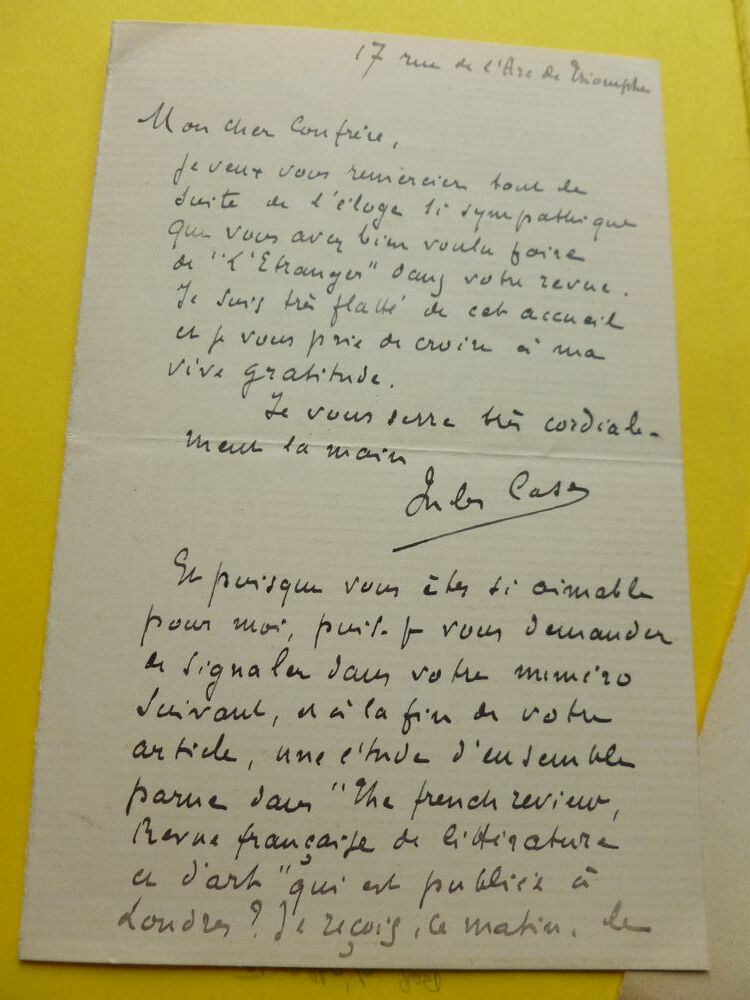 17 rue de l'Arc de Triomphe
Mon cher Confrère,
je veux vous remercier tout de
suite de l'éloge si sympathique
que vous avez bien voulu faire
de "L'Etranger" dans votre revue.
Je suis très flatté de cet accueil
et je vous prie de croire à ma
vive gratitude.
Je vous serre très cordiale-
ment la main
Jules Case
Et puisque vous êtes si aimable
pour moi, puis-je vous demander
de signaler dans votre numéro
suivant, et à la fin de votre
article, une étude d'ensemble
parue dans "The french review,
Revue française de littérature
et d'art" qui est publiée à
Londres? Je reçois, ce matin, le